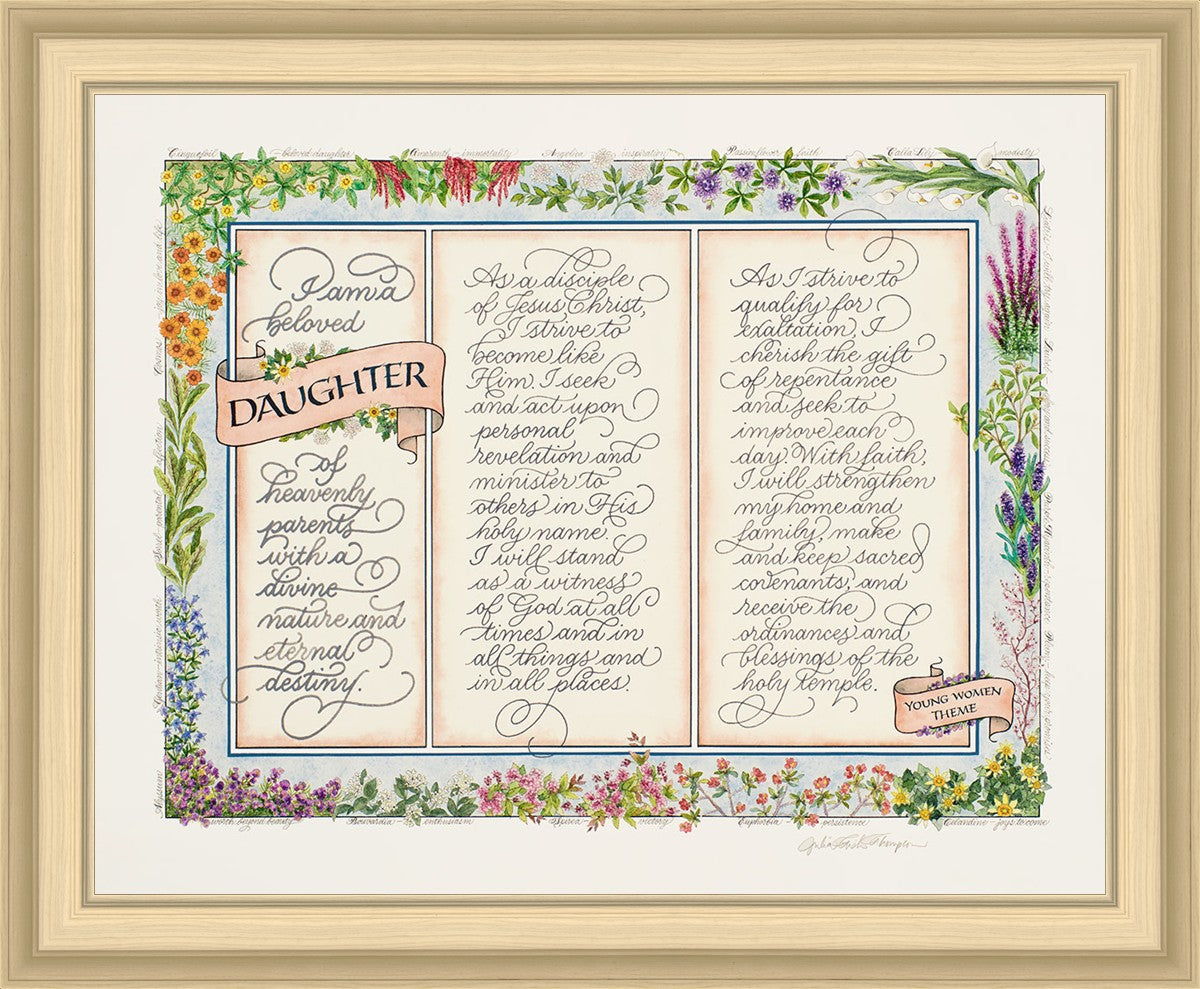 Cinquefoil – beloved daughter Amaranth – immortality Angelica – inspiration Passionflower – faith Calla Lily – modesty
I am a
beloved
DAUGHTER
of
heavenly
parents
with a
divine
nature and
eternal
destiny.
As a disciple
of Jesus Christ,
I strive to
become like
Him. I seek
and act upon
personal
revelation and
minister to
others in His
holy name.
I will stand
as a witness
of God at all
times and in
all things and
in all places.
As I strive to
qualify for
exaltation, I
cherish the gift
of repentance
and seek to
improve each
day. With faith,
I will strengthen
my home and
family, make
and keep sacred
covenants, and
receive the
ordinances and
blessings of the
holy temple.
YOUNG WOMEN
THEME
Cosmos
Sorel – parental affection
Alyssum
worth beyond beauty Bouvardia – enthusiasm Spirea – victory Euphorbia – persistence Celandine – joys to come